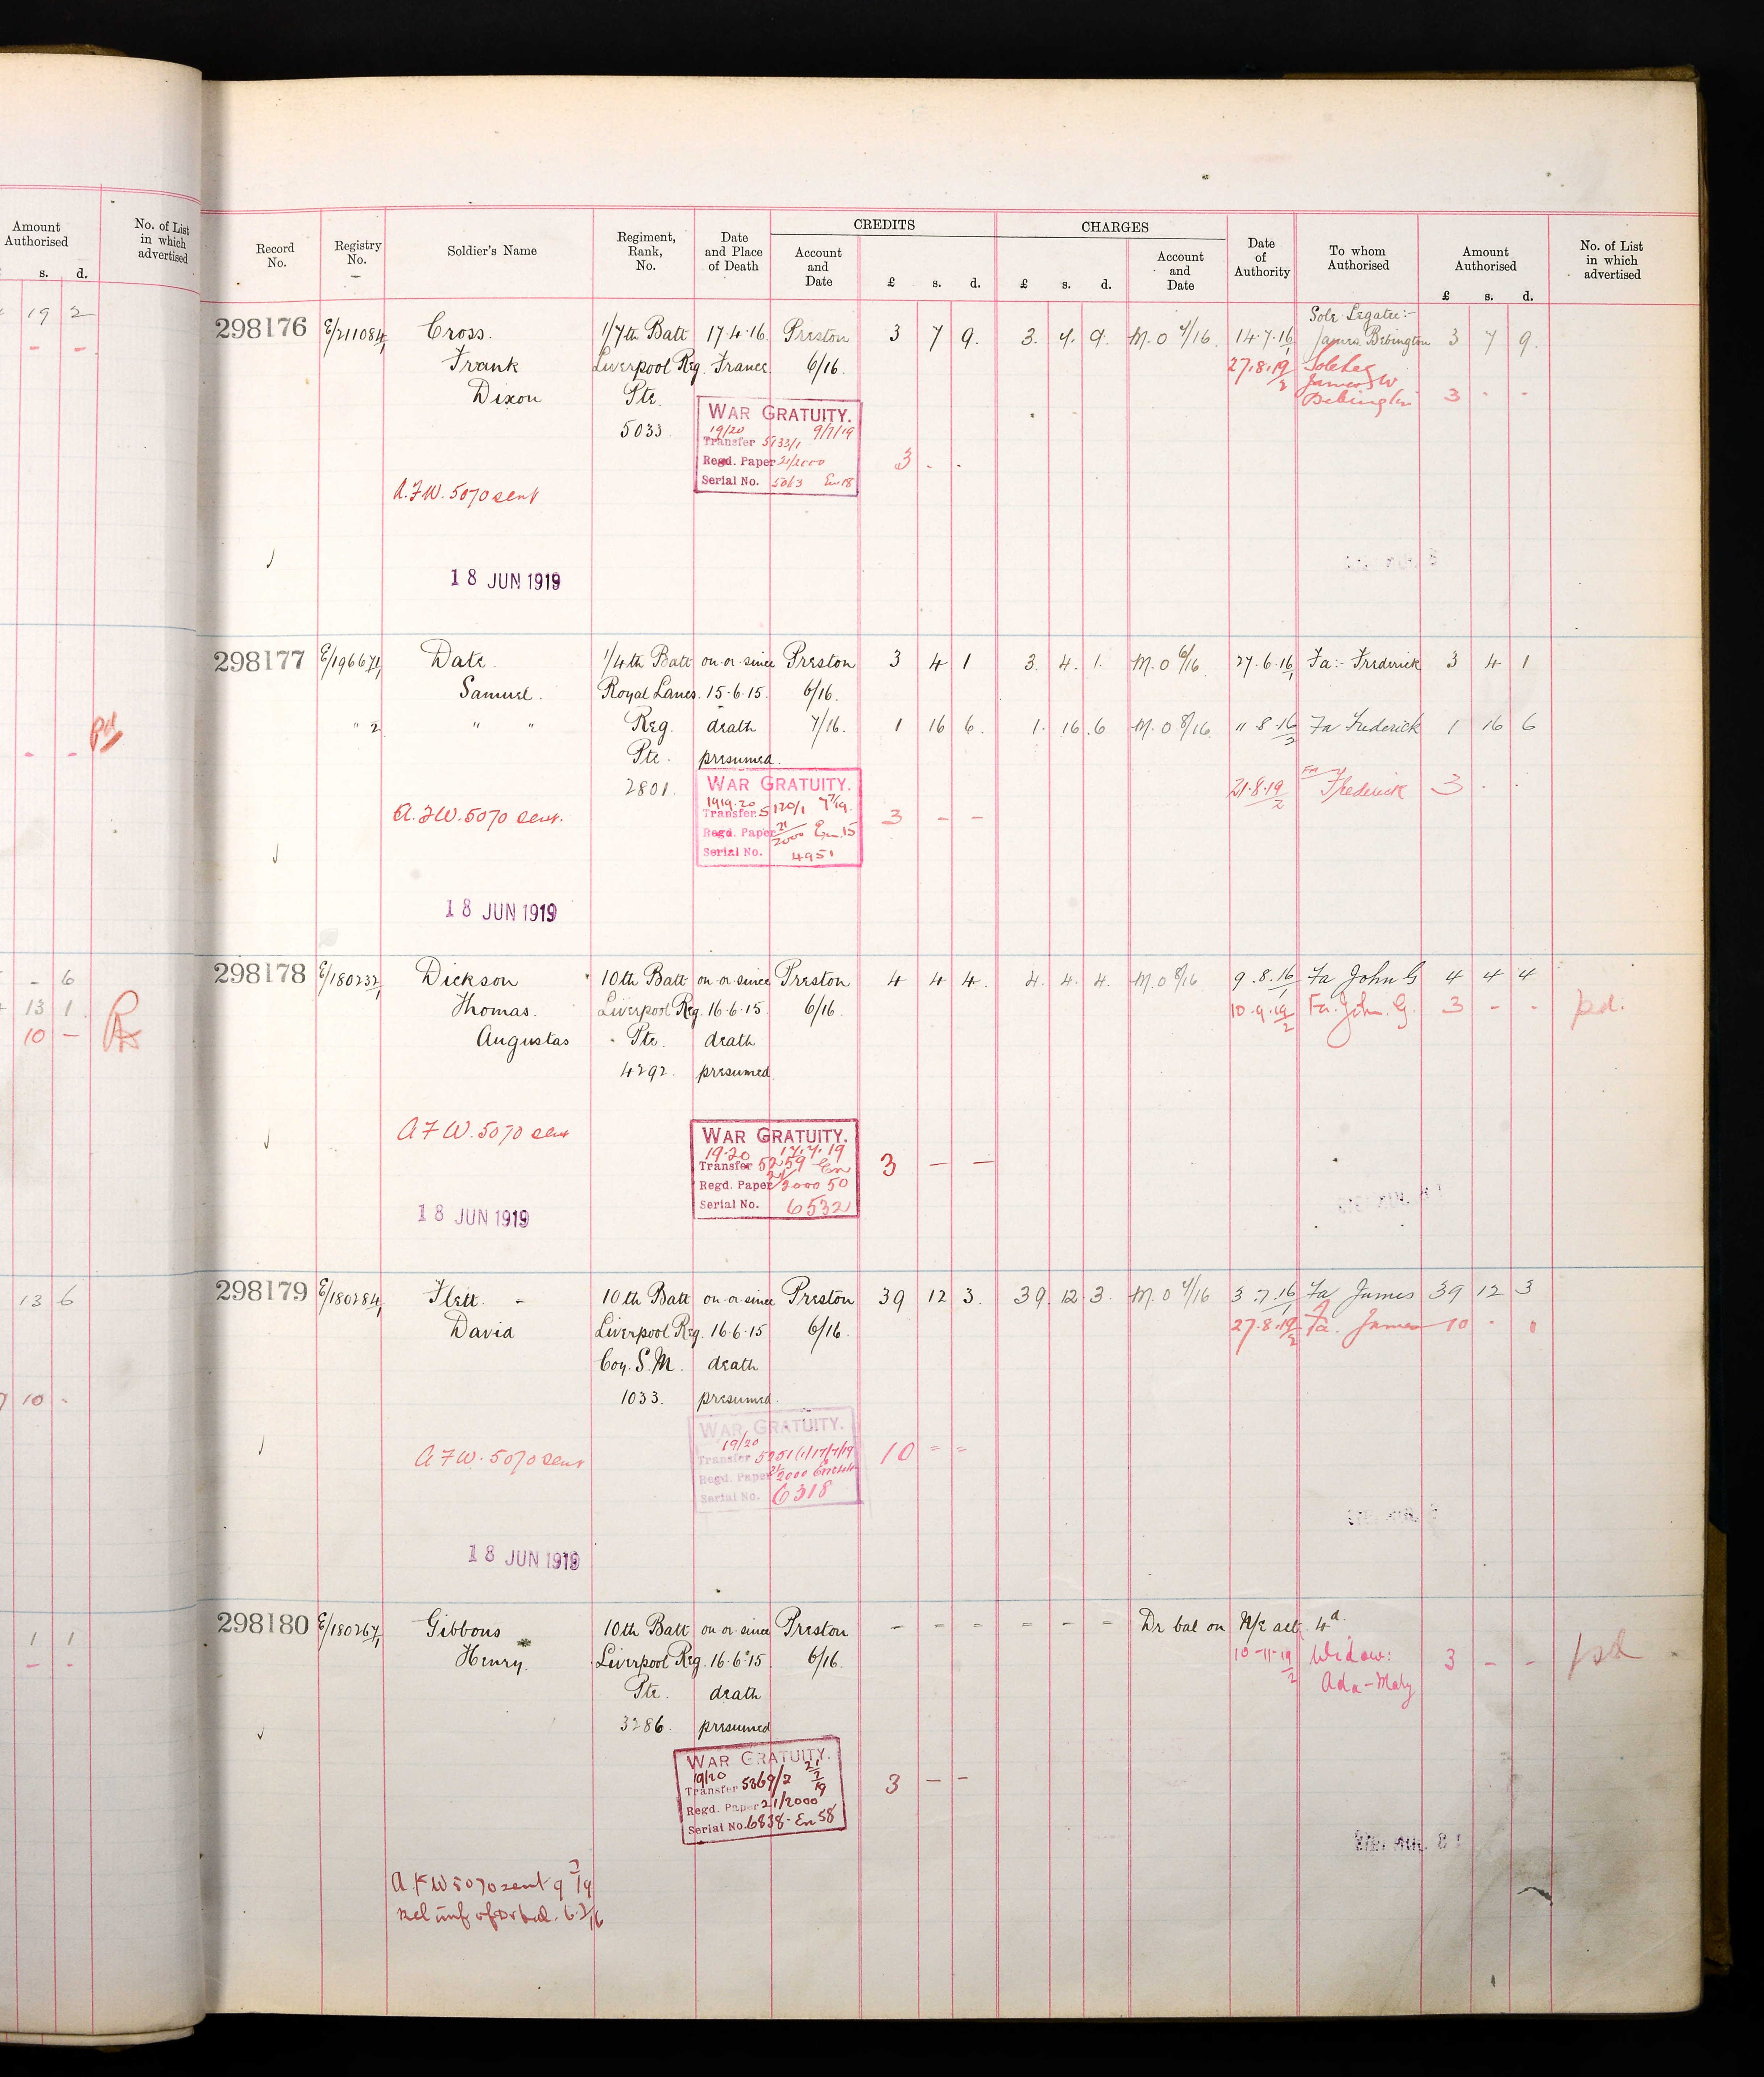 Amount
Authorised
s. d.
No. of List
in which
advertised
19 2
- -
- -
- 6
13 1
10 -
13 6
10 -
1 1
- -
CREDITS CHARGES
Record
No.
Registry
No.
Soldier's Name
Regiment,
Rank,
No.
Date
and Place
of Death
Account
and
Date
£ s. d.
£ s. d.
Account
and
Date
Date
of
Authority
To whom
Authorised
Amount
Authorised
£ s. d.
No. of List
in which
advertised
Sole Legatee:-
298176 E/211084/1 Cross. 1/7th Batt 17.4.16. Preston 3 7 9. 3. 7. 9. M.O 7/16. 14.7.16/1 James Bebington 3 7 9.
Frank Liverpool Reg. France. 6/16. 27.8.19/2 Sole Leg
Dixon Pte. James W Bebington 3 - -
5033.
WAR GRATUITY.
19/20 9/7/19
Transfer 5133/1
Regd. Paper 21/2000
Serial No. 5063 En 18
3 - -
A.F.W. 5070 sent
18 JUN 1919
298177 E/196671/1 Date. 1/4th Batt on or since Preston 3 4 1 3. 4. 1. M.O 6/16. 27.6.16/1 Fa:- Frederick 3 4 1
Samuel. Royal Lancs. 15.6.15. 6/16.
" 2 " " Reg. death 7/16. 1 16 6. 1. 16. 6 M.O 8/16. 11.8.16/2 Fa Frederick 1 16 6
Pte. presumed.
2801. 21.8.19/2 Frederick 3 - -
WAR GRATUITY.
1919.20
Transfer 5120/1
Regd. Paper 21/2000 En. 15
Serial No. 4951
3 - -
A.F.W. 5070 sent.
18 JUN 1919
298178 E/180232/1 Dickson 10th Batt on or since Preston 4 4 4. 4. 4. 4. M.O 8/16 9.8.16/1 Fa John G 4 4 4
Thomas. Liverpool Reg. 16.6.15. 6/16. 10.9.19/2 Fa. John. G. 3 - - pd.
Augustas Pte. death
4292. presumed.
A F W. 5070 sent
WAR GRATUITY.
19.20 17.7.19
Transfer 5259 En
Regd. Paper 21/2000 50
Serial No. 6532
3 - -
18 JUN 1919
298179 E/180284/1 Flett. - 10th Batt on or since Preston 39 12 3. 39. 12. 3. M.O 7/16 3.7.16/1 Fa James 39 12 3
David Liverpool Reg. 16.6.15 6/16. 27.8.19/2 Fa. James 10 - -
Coy. S.M. death
1033. presumed.
WAR GRATUITY.
19/20
Transfer 5251/1/17/7/19
Regd. Paper 21/2000
Serial No. 6318
10 - -
A F W. 5070 sent
18 JUN 1919
298180 E/180267/1 Gibbons 10th Batt on or since Preston - - - - - - Dr bal on N/E actg. 4d.
Henry. Liverpool Reg. 16.6.15 6/16. 10-11-19/2 Widow: 3 - - pd
Pte. death Ada-Mary
3286. presumed
WAR GRATUITY.
19/20
Transfer 5369/2
Regd. Paper 21/2000
Serial No. 6838- En 58
3 - -
A.F.W 5070 sent